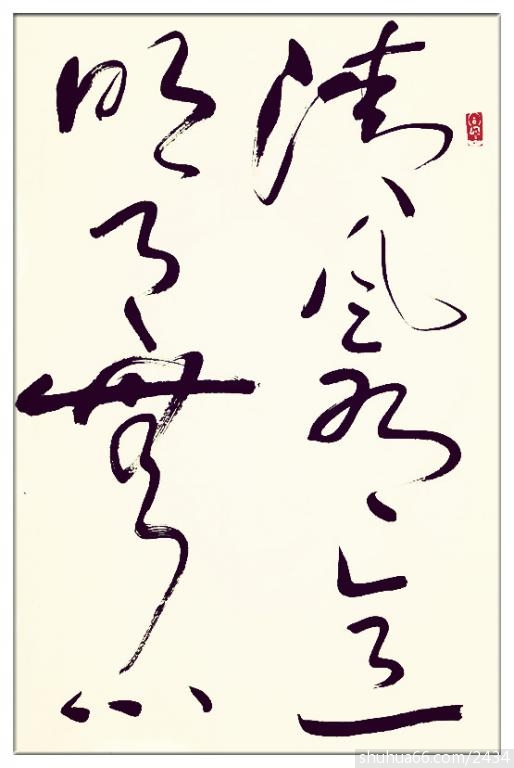 清風有意
明月無心
shuhua66.com/2434